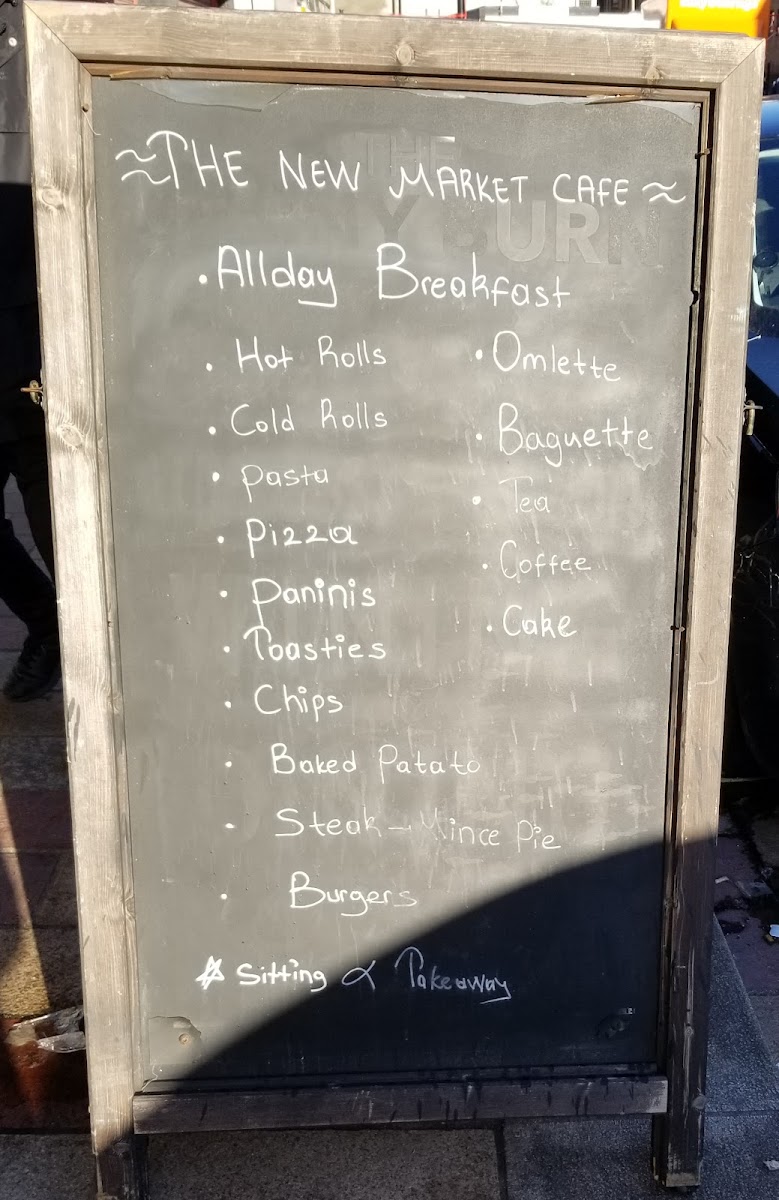 ≈THE NEW MARKET CAFE≈
THE
URN
• Allday Breakfast
• Hot Rolls
• Cold Rolls
• Pasta
• Pizza
• Paninis
• Toasties
• Chips
• Baked Patato
• Steak - Mince Pie
• Burgers
• Omlette
• Baguette
• Tea
• Coffee
• Cake
☆ Sitting & Takeaway